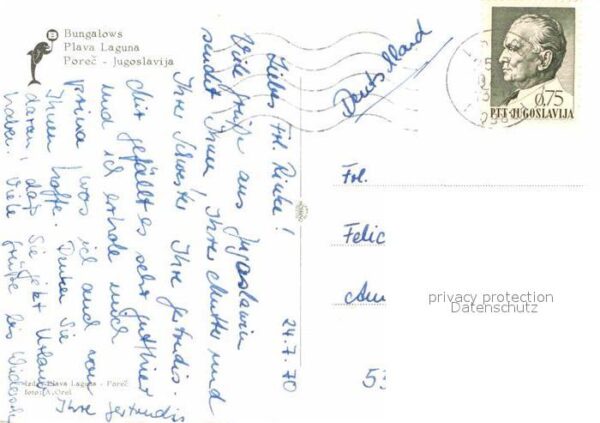 Bungalows
Plava Laguna
Poreč - Jugoslavija
24.7.70
Liebes Frl. Rieke!
Viele Grüße aus Jugoslawien
sendet Ihnen, Ihrer Mutter und
Ihrer Schwester Ihre Gertrudis.
Mir gefällt es sehr gut hier
und ich erhole mich
prima, was ich auch von
Ihnen hoffe. Denken Sie
daran, daß Sie jetzt Urlaub
haben! Viele Grüße bis
Ihre Gertrudis
Deutschland
0,75
PTT JUGOSLAVIJA
Frl.
Felic
Am
53
privacy protection
Datenschutz
Plava Laguna - Poreč
foto: A. Orel